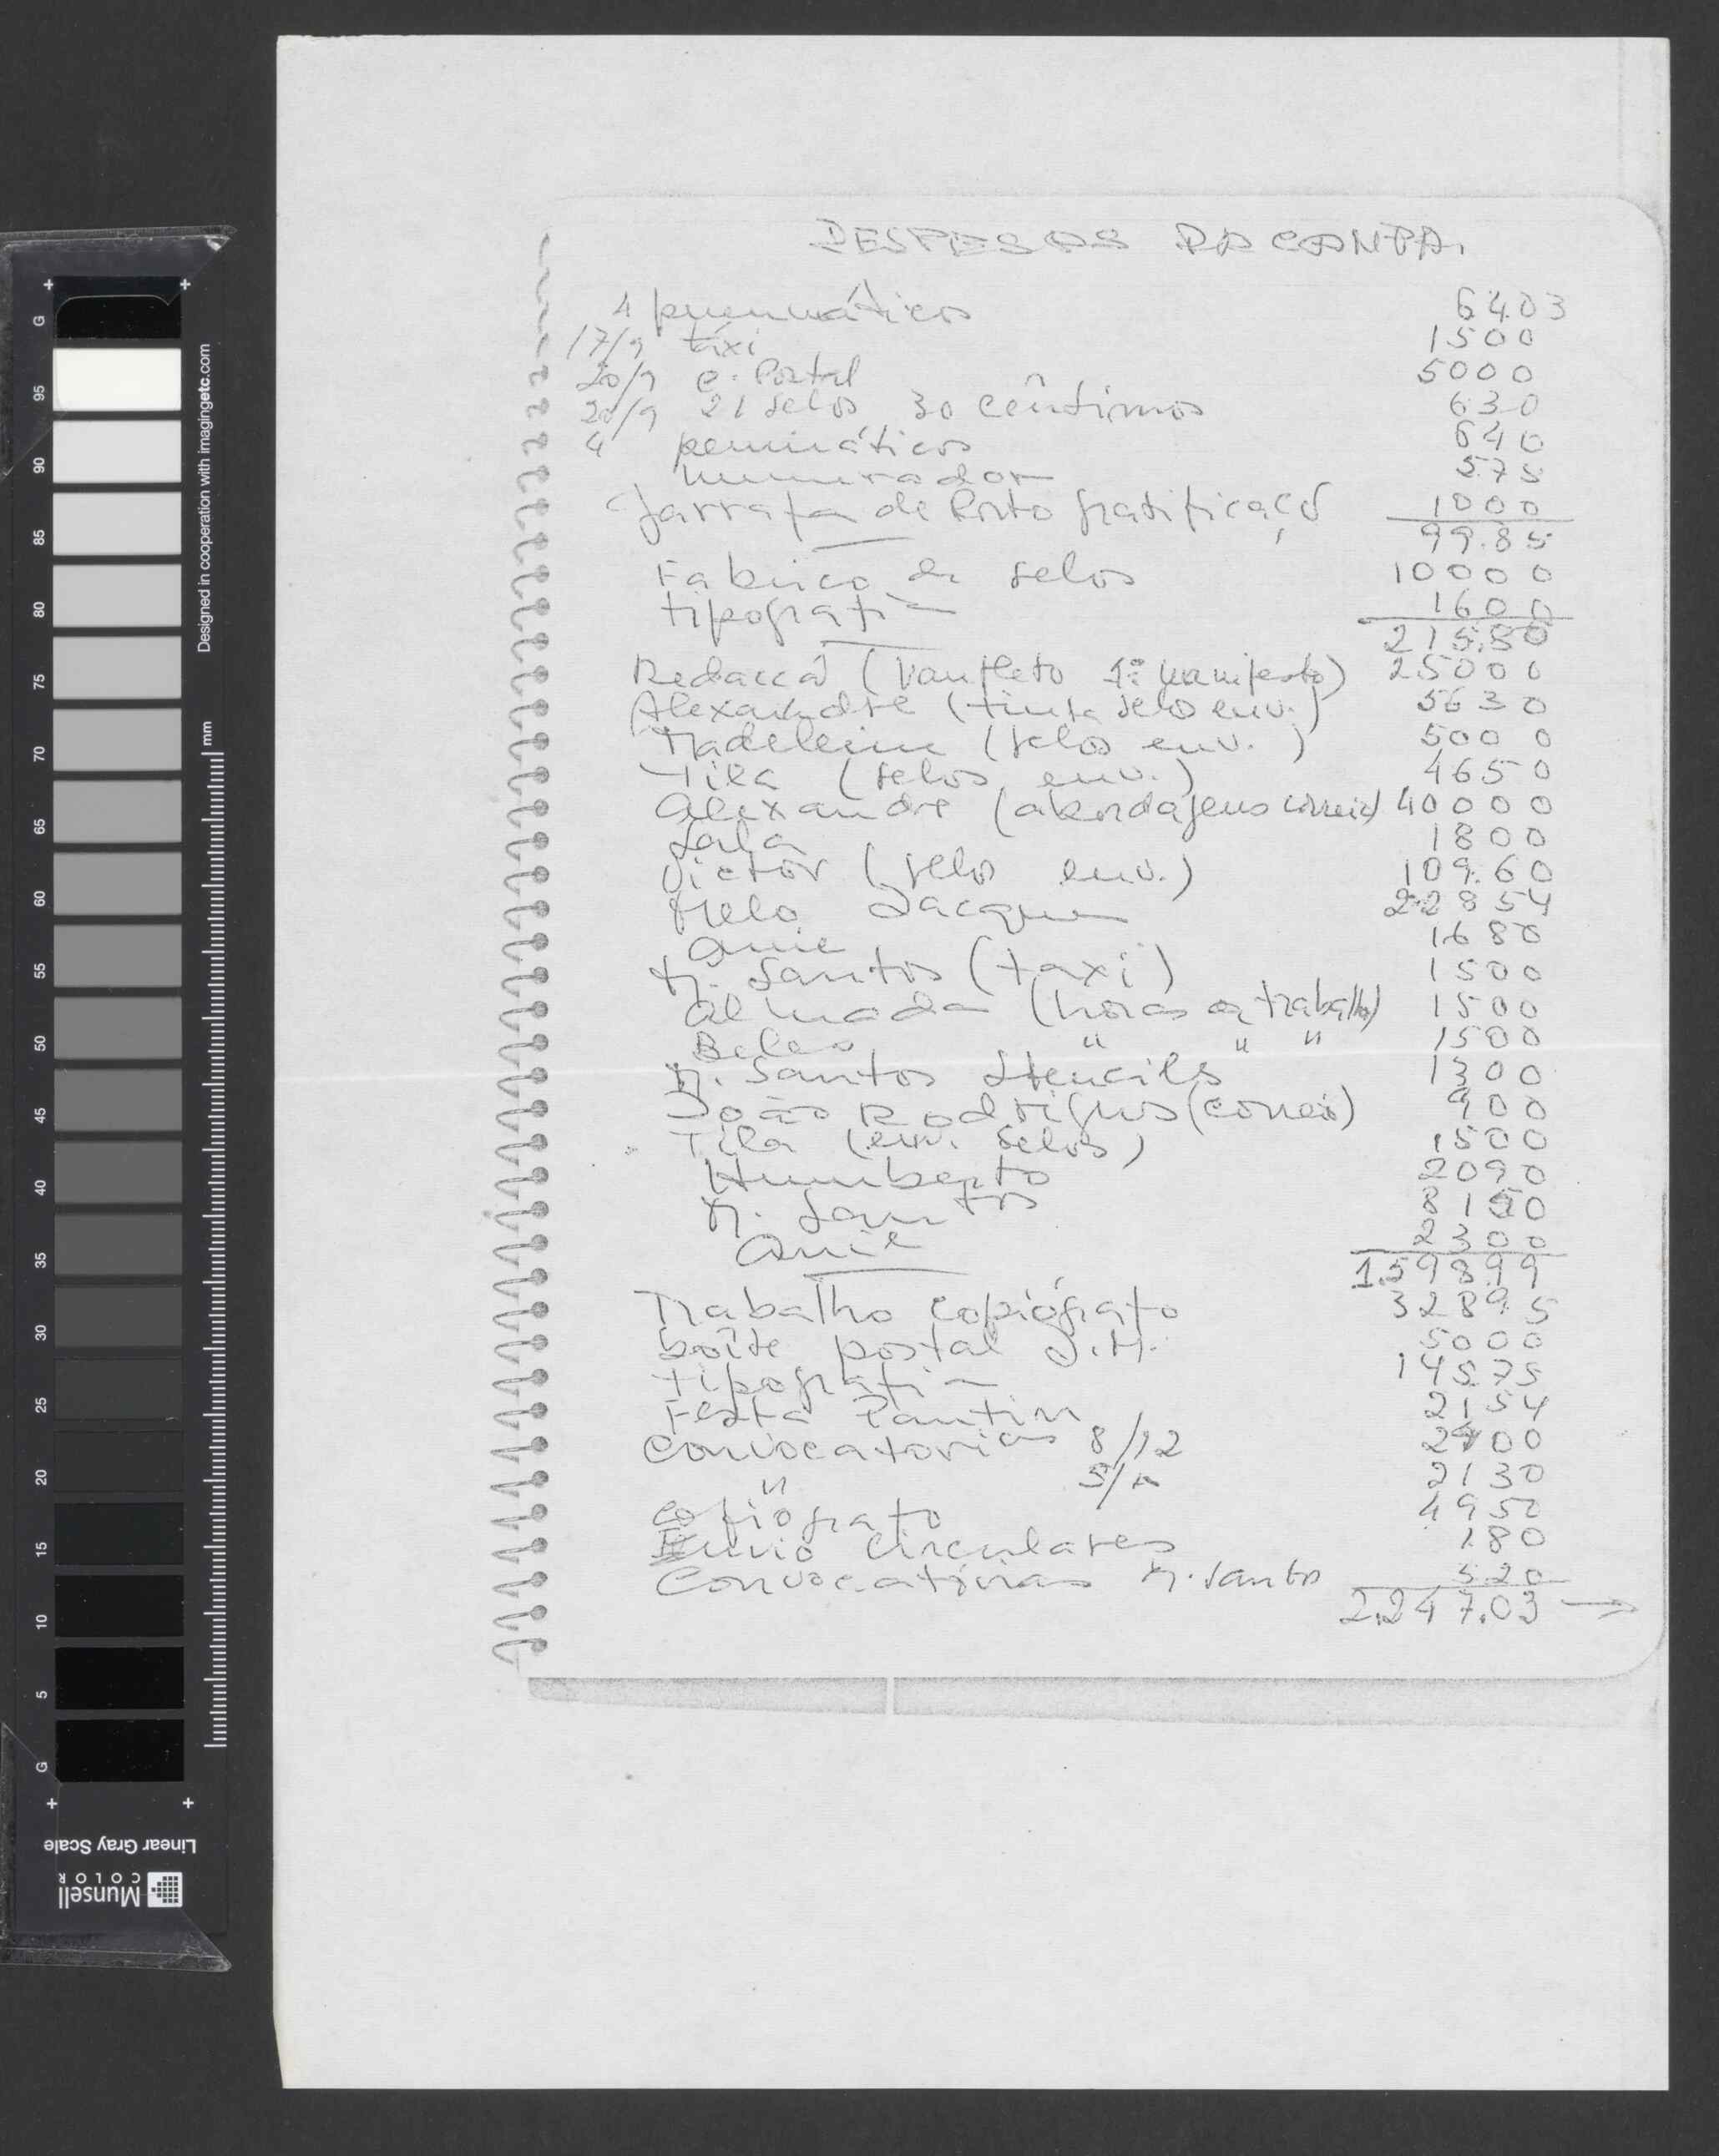 DESPESAS DA CAMPA.
4 pneumáticos 6403
17/9 táxi 1500
20/9 C. Postal 5000
20/9 21 selos 30 cêntimos 630
4 penumáticos 640
numerador 575
Garrafa de Porto gratificaçõ 1000
99.85
Fabrico de selos 10000
tipografia 1600
215.80
Redacçaõ (Panfleto 1º manifesto) 25000
Alexandre (tinta selo env.) 5630
Madeleine (selos env.) 5000
Tila (selos env.) 4650
Alexandre (abordagens correio) 40000
Sala 1800
Victor (selo env.) 109.60
Melo Jacques 22854
Anie 1680
M. Santos (taxi) 1500
Almada (horas de trabalho) 1500
Beleo " " " 1500
M. Santos Stencils 1300
João Rodrigues (correio) 900
Tila (env. selos) 1500
Humberto 2090
M. Santos 8100
Anie 2300
1.598.99
Trabalho copiógrafo 3289.5
boîte postal J.M. 5000
tipografia 14575
Festa Pantin 2154
Convocatorias 8/12 2900
" 5/ 2130
copiógrafo 4950
Envio circulares 180
Convocatórias M. Santos 520
2.247.03 →
Designed in cooperation with imagingetc.com
mm
G 95 90 85 80 75 70 65 60 55 50 45 40 35 30 25 20 15 10 5 G
Linear Gray Scale
Munsell
COLOR